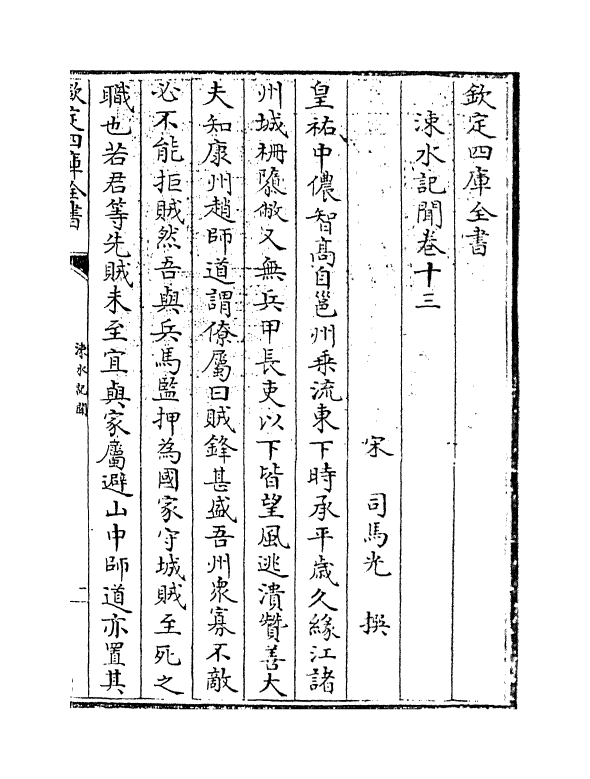 欽定四庫全書
涑水記聞卷十三
宋　司馬光　撰
皇祐中儂智髙自邕州乗流東下時承平歳久緣江諸
州城栅隳敝又無兵甲長吏以下皆望風逃潰贊善大
夫知康州趙師道謂僚屬曰賊鋒甚盛吾州衆寡不敵
必不能拒賊然吾與兵馬監押為國家守城賊至死之
職也若君等先賊未至宜與家屬避山中師道亦置其
欽定四庫全書
涑水記聞
一